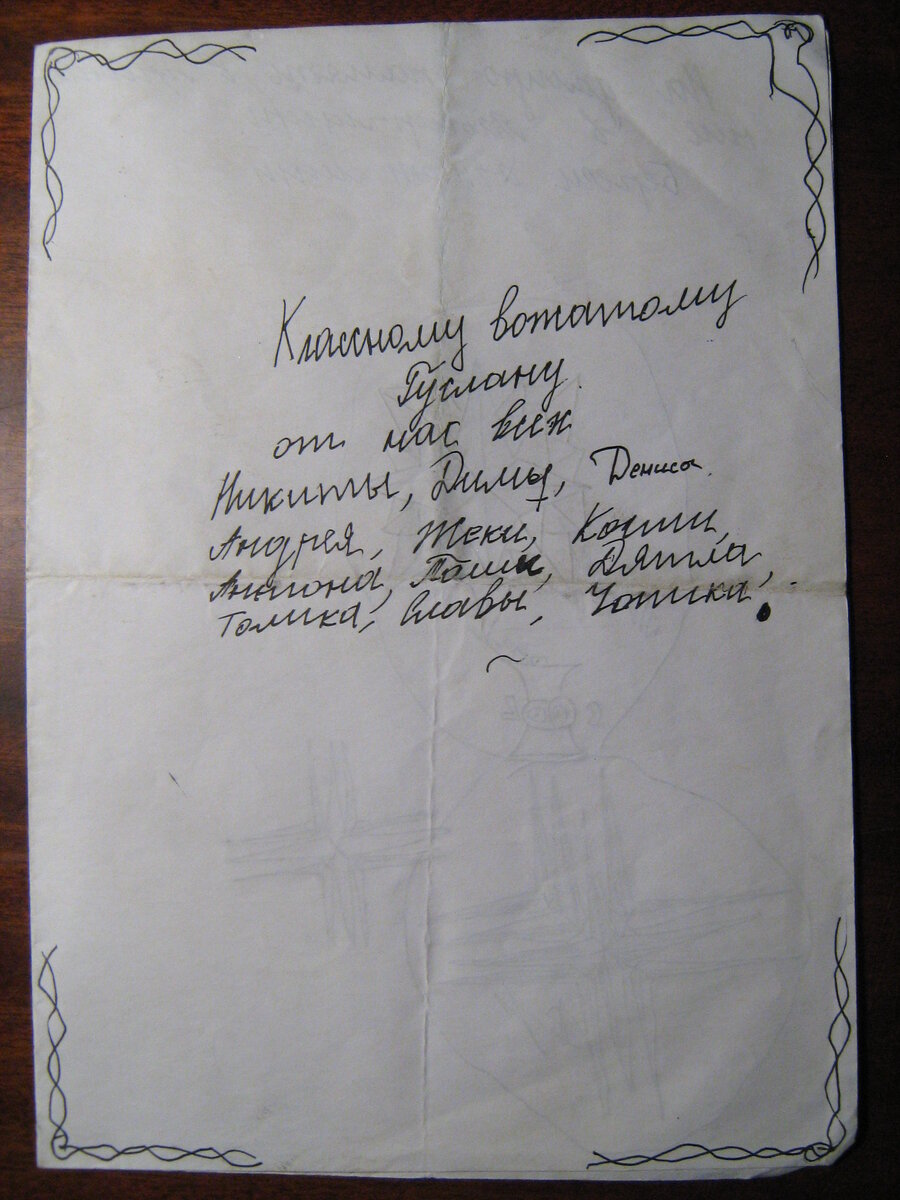 Классному вожатому
Руслану
от нас всех
Никиты, Димы, Дениса.
Андрея, Жеки, Кости,
Антона, Паши, Дятла,
Толика, Славы, Чотика.